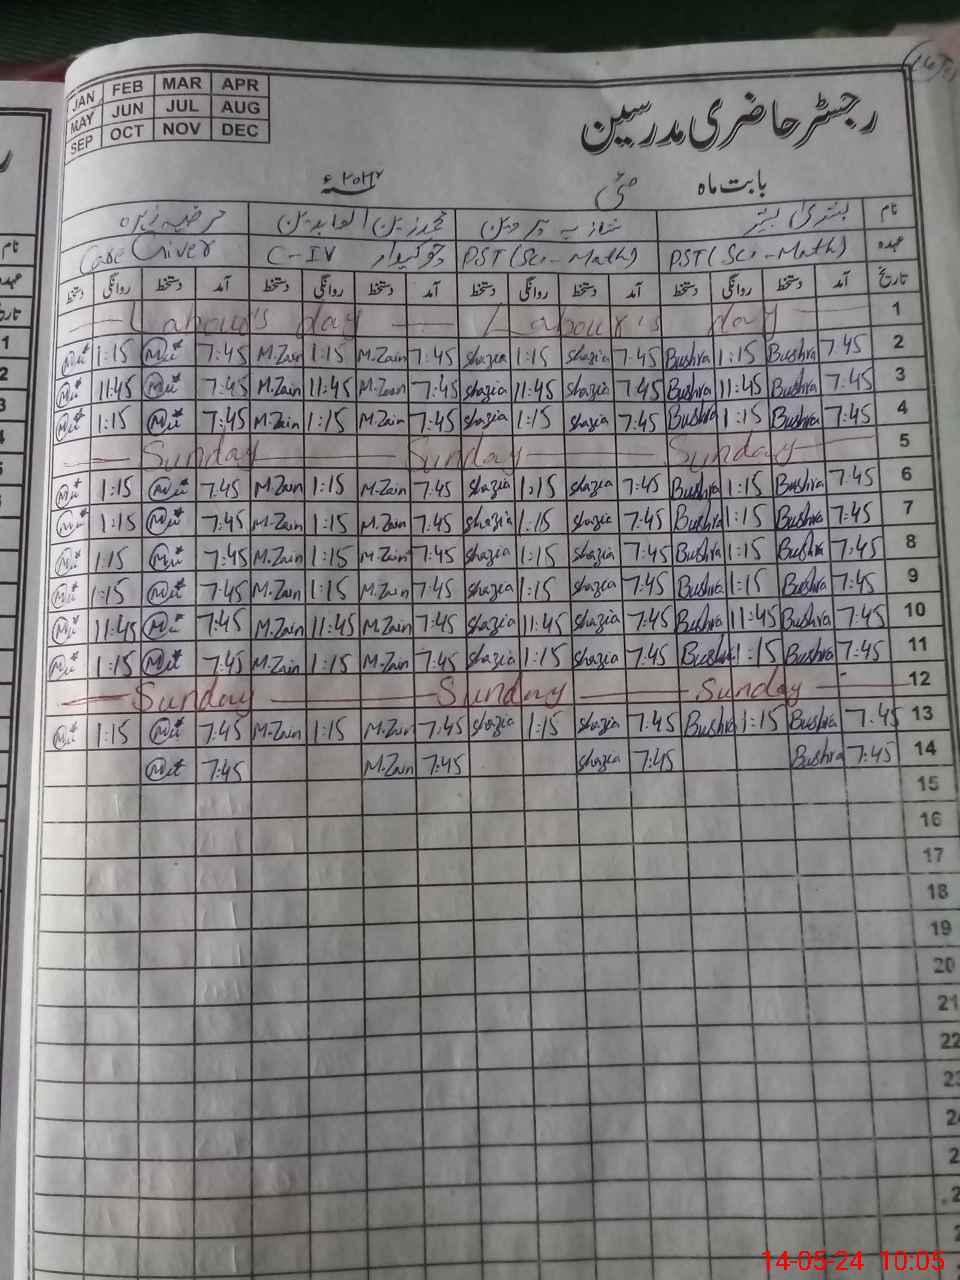 JAN FEB MAR APR
MAY JUN JUL AUG
SEP OCT NOV DEC
رجسٹر حاضری مدرسین
بابت ماہ مئی ۲۰۲۴ء
نام بشریٰ بشیر شازیہ پروین محمد زین العابدین
عہدہ PST (Sci-Math) PST (Sci-Math) چوکیدار C-IV Care Giver
تاریخ آمد دستخط روانگی دستخط آمد دستخط روانگی دستخط آمد دستخط روانگی دستخط آمد دستخط روانگی دستخط
Labour's day Labour's day 1
1:15 7:45 M.Zain 1:15 M.Zain 7:45 Shazia 1:15 Shazia 7:45 Bushra 1:15 Bushra 7:45 2
11:45 7:45 M.Zain 11:45 M.Zain 7:45 Shazia 11:45 Shazia 7:45 Bushra 11:45 Bushra 7:45 3
1:15 7:45 M.Zain 1:15 M.Zain 7:45 Shazia 1:15 Shazia 7:45 Bushra 1:15 Bushra 7:45 4
Sunday Sunday Sunday 5
1:15 7:45 M.Zain 1:15 M.Zain 7:45 Shazia 1:15 Shazia 7:45 Bushra 1:15 Bushra 7:45 6
1:15 7:45 M.Zain 1:15 M.Zain 7:45 Shazia 1:15 Shazia 7:45 Bushra 1:15 Bushra 7:45 7
1:15 7:45 M.Zain 1:15 M.Zain 7:45 Shazia 1:15 Shazia 7:45 Bushra 1:15 Bushra 7:45 8
1:15 7:45 M.Zain 1:15 M.Zain 7:45 Shazia 1:15 Shazia 7:45 Bushra 1:15 Bushra 7:45 9
11:45 7:45 M.Zain 11:45 M.Zain 7:45 Shazia 11:45 Shazia 7:45 Bushra 11:45 Bushra 7:45 10
1:15 7:45 M.Zain 1:15 M.Zain 7:45 Shazia 1:15 Shazia 7:45 Bushra 1:15 Bushra 7:45 11
Sunday Sunday Sunday 12
1:15 7:45 M.Zain 1:15 M.Zain 7:45 Shazia 1:15 Shazia 7:45 Bushra 1:15 Bushra 7:45 13
7:45 M.Zain 7:45 Shazia 7:45 Bushra 7:45 14
15
16
17
18
19
20
21
22
14-05-24 10:05